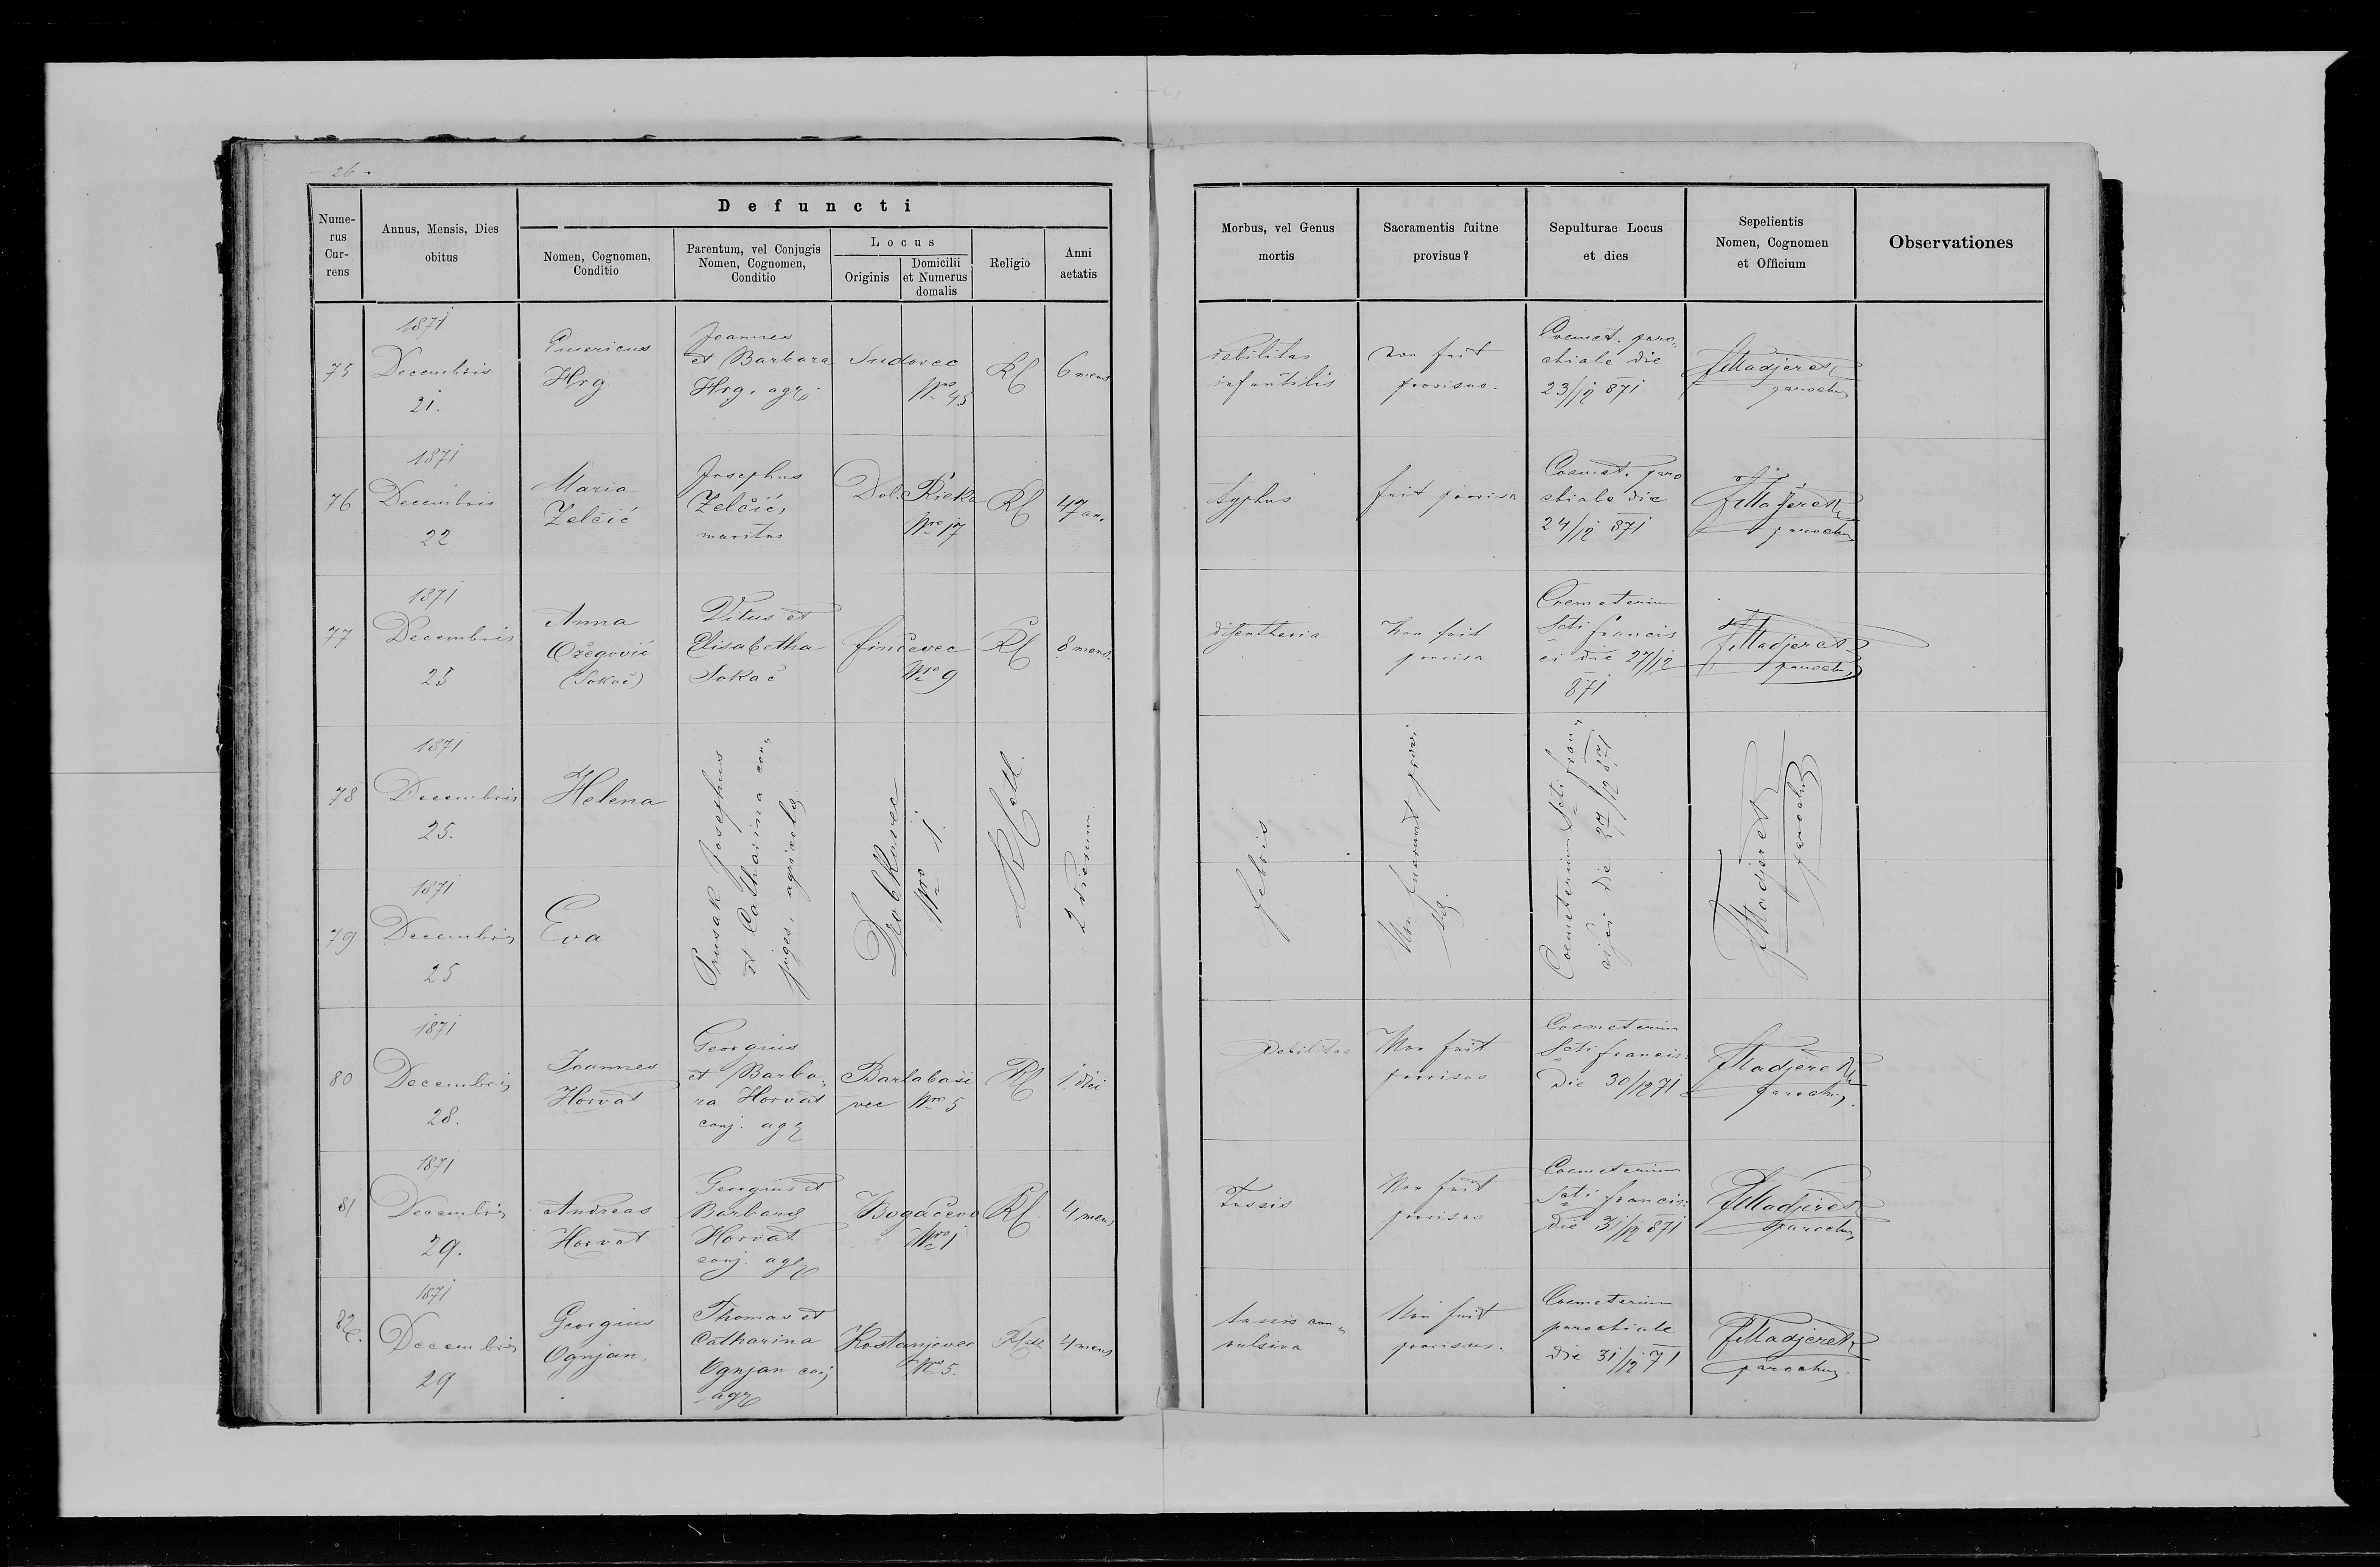 - 26 -
Nume-
rus
Cur-
rens
Annus, Mensis, Dies
obitus
Defuncti
Nomen, Cognomen,
Conditio
Parentum, vel Conjugis
Nomen, Cognomen,
Conditio
Locus
Originis
Domicilii
et Numerus
domalis
Religio
Anni
aetatis
Morbus, vel Genus
mortis
Sacramentis fuitne
provisus?
Sepulturae Locus
et dies
Sepelientis
Nomen, Cognomen
et Officium
Observationes
75
1871
Decembris
21.
Emericus
Hrg
Joannes
et Barbara
Hrg, agr
Sudovec
Nro 45
RC
6 mens
debilitas
infantilis
non fuit
provisus.
Coemet. paro„
chiale die
23/12 871
FMadjeres
parochus
76
1871
Decembris
22
Maria
Zelčić
Josephus
Zelčić,
maritus
Dol. Rieka
Nro 17
RC
47 an.
typhus
fuit provisa
Coemet. paro
chiale die
24/12 871
FMadjeres
parochus
77
1871
Decembris
25
Anna
Ožegović
(Sokač)
Vitus et
Elisabetha
Sokač
Finčevec
Nro 9
RC
8 mens.
disentheria
Non fuit
provisa
Coemeterium
Scti Francis
ci die 27/12
871
FMadjeres
parochus
78
1871
Decembris
25.
Helena
79
1871
Decembris
25
Eva
Prusak Josephus
et Catharina con„
juges, agricolae
Drobkovec
Nro 1.
RCath.
2 dierum
febris
Non fuerunt provi„
sae.
Coemeterium Scti Fran„
cisci die 27/12 871
FMadjeres
parochus
80
1871
Decembris
28.
Joannes
Horvat
Georgius
et Barba„
ra Horvat
conj. agr
Barlabaši
vec Nro 5
RC
1 diei
Debilitas
Non fuit
provisus
Coemeterium
Scti Francis:
Die 30/12 71
FMadjeres
parochus.
81
1871
Decembris
29.
Andreas
Horvat
Georgius et
Barbara
Horvat
conj. agr
Bogačevo
Nro 1
RC.
4 mens
Tussis
Non fuit
provisus
Coemeterium
Scti Francis:
die 31/12 871
FMadjeres
parochus
82.
1871
Decembris
29
Georgius
Ognjan.
Thomas et
Catharina
Ognjan conj
agr
Kostanjevec
Nro 5.
RCath
4 mens
tussis con„
vulsiva
Non fuit
provisus.
Coemeterium
parochiale
die 31/12 71
FMadjeres
parochus.